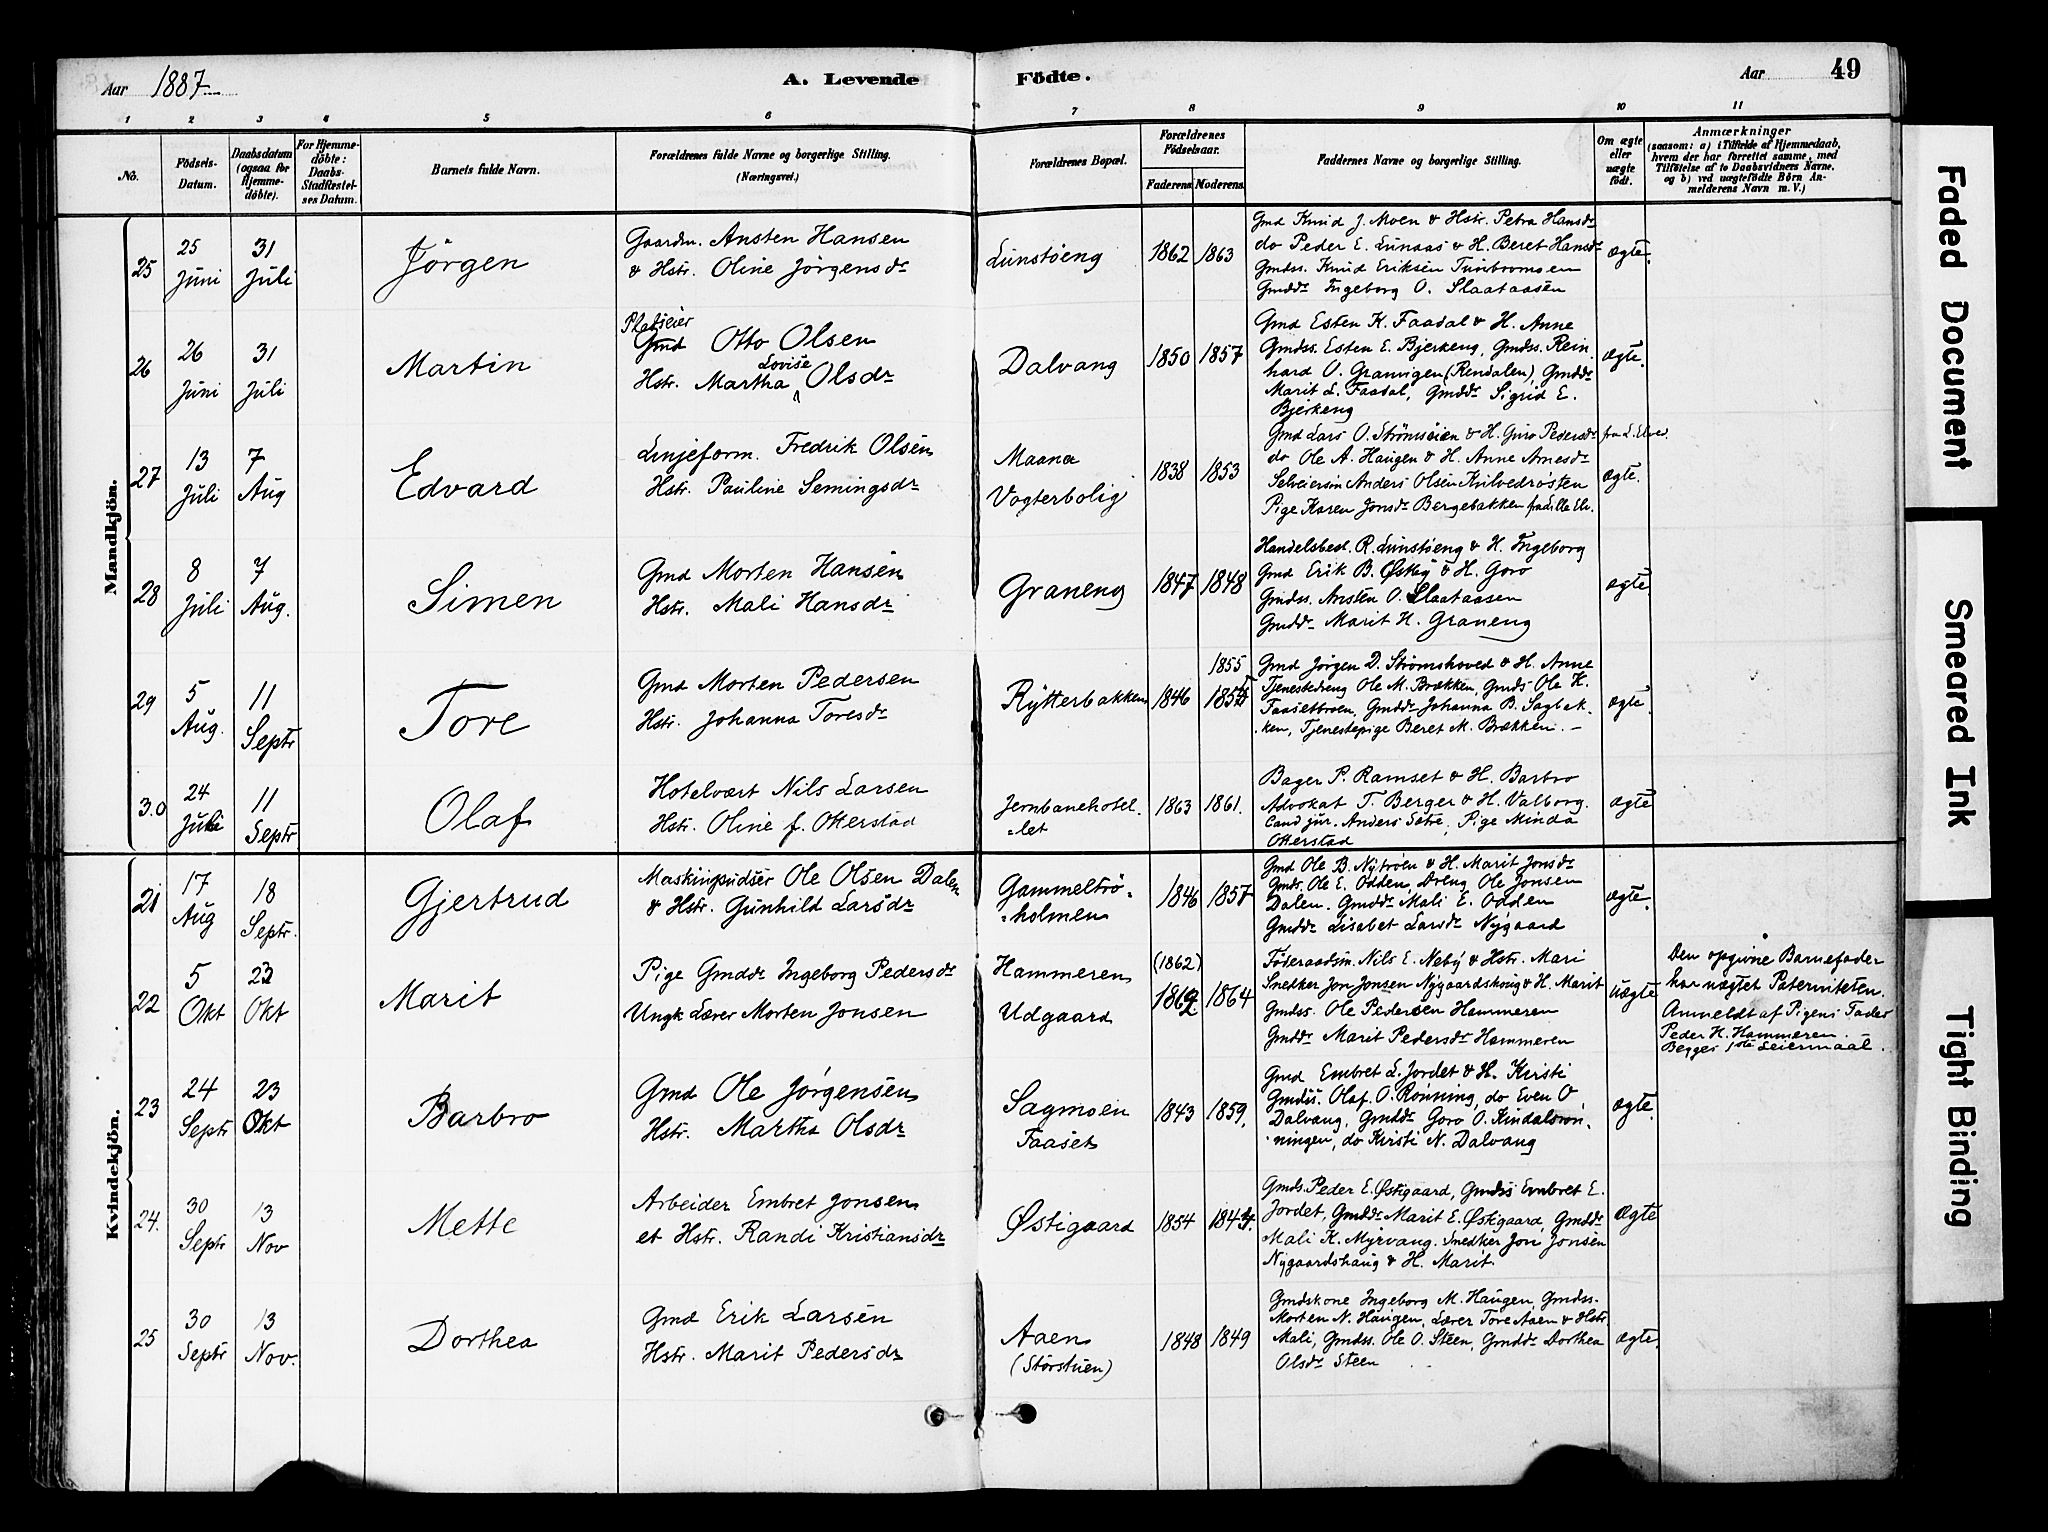 Aar 1887
A. Levende Födte.
Aar 49
1 2 3 4 5 6 7 8 9 10 11
No.
Födsels-
Datum.
Daabsdatum
(ogsaa for
Hjemme-
döbte).
For Hjemme-
döbte:
Daabs-
Stadfæstel-
ses Datum.
Barnets fulde Navn.
Forældrenes fulde Navne og borgerlige Stilling.
(Næringsvei.)
Forældrenes Bopæl.
Forældrenes
Födselsaar.
Faderens. Moderens.
Faddernes Navne og borgerlige Stilling.
Om ægte
eller
uægte
födt.
Anmærkninger
(saasom: a) i Tilfælde af Hjemmedaab,
hvem der har forrettet samme, med
Tilföielse af to Daabsvidners Navne,
og b) ved uægtefödte Börn An-
melderens Navn m. V.)
Mandkjön.
25
25
Juni
31
Juli
Jörgen
Gaardm. Ansten Hansen
& Hstr. Oline Jörgensdr
Lunstöeng
1862 1863
Gmd Knud J. Moen & Hstr. Petra Hansdr
do Peder E. Lunaas & H. Beret Hansdr
Gmdss. Knud Eriksen Tunbromoen
Gmddr Ingeborg O. Slaataasen
ægte.
26
26
Juni
31
Juli
Martin
Pladseier
Gmd Otto Olsen
Lovise
Hstr. Martha Olsdr
Dalvang
1850 1857
Gmd Esten K. Faadal & H. Anne
Gmdss. Esten E. Bjerkeng, Gmdss. Rein
hard O. Granvigen (Rendalen), Gmddr
Marit L. Faadal, Gmddr Sigrid E.
Bjerkeng
ægte.
27
13
Juli
7
Aug
Edvard
Linjeform. Fredrik Olsen
Hstr. Pauline Semingsdr
Maana
Vogterbolig
1838 1853
Gmd Lars O. Strömsöien & H. Guro Pedersdr fra L. Elved.
do Ole A. Haugen & H. Anne Arnesdr
Selveiersön Anders Olsen Kvilvedrösten
Pige Karen Jonsdr Bergebakken fra Lille Elv.
ægte.
28
8
Juli
7
Aug.
Simen
Gmd Morten Hansen
Hstr. Mali Hansdr
Graneng
1847 1848
Handelsbed. R. Lunstöeng & H. Ingeborg
Gmd Erik B. Østby & H. Goro
Gmdss. Ansten O. Slaataasen
Gmddr Marit H. Graneng
ægte
29
5
Aug.
11
Septr
Tore
Gmd Morten Pedersen
Hstr. Johanna Toresdr
Rytterbakken
1846
1855
Gmd Jörgen D. Strömshoved & H. Anne
Tjenestedreng Ole M. Brækken, Gmds Ole K.
Faasetbroen, Gmddr Johanna B. Sagbak-
ken, Tjenestepige Beret M. Brækken. –
ægte.
30
24
Juli
11
Septr
Olaf
Hotelvært Nils Larsen
Hstr. Oline f. Otterstad
Jernbanehotel-
let
1863 1861.
Bager P. Ramset & H. Barbro
Advokat T. Berger & H. Valborg.
Cand jur. Anders Sætre, Pige Minda
Otterstad
ægte
Kvindekjön.
21
17
Aug
18
Septr.
Gjertrud
Maskinpudser Ole Olsen Dalen
& Hstr. Gunhild Larsdr
Gammeltrö-
holmen
1846 1857
Gmd Ole B. Nytröen & H. Marit Jonsdr
Gmds. Ole E. Odden, Dreng Ole Jonsen
Dalen. Gmddr Mali E. Odden
Gmddr Lisabet Larsdr Nygaard
ægte.
22
5
Okt
23
Okt
Marit
Pige Gmddr Ingeborg Pedersdr
Ungk Lærer Morten Jonsen
Hammeren
Udgaard
(1862)
1862 1864
Föderaadsm. Nils E. Neby & Hstr. Mari
Snedker Jon Jonsen Nygaardshaug & H. Marit
Gmdss. Ole Pedersen Hammeren
Gmddr Marit Pedersdr Hammeren
uægte
Den opgivne Barnefader
har nægtet Paterniteten.
Anmeldt af Pigens Fader
Peder H. Hammeren. –
Begges 1ste Leiermaal.
23
24
Septr
23
Okt
Barbro
Gmd Ole Jörgensen
Hstr. Martha Olsdr
Sagmoen
Faaset
1843 1859.
Gmd Embret L. Jordet & H. Kirsti
Gmdss. Olaf O. Rönning, do Even O.
Dalvang, Gmddr Goro O. Kindalsrön-
ningen, do Kirsti N. Dalvang
ægte.
24.
30
Septr
13
Nov
Mette
Arbeider Embret Jonsen
et Hstr. Randi Kristiansdr
Østigaard
1854
Gmds. Peder E. Østigaard, Gmdss Embret E.
Jordet, Gmddr Marit E. Østigaard, Gmddr
Mali K. Myrvang. Snedker Jon Jonsen
Nygaardshaug & H. Marit.
ægte
25
30
Septr
13
Nov.
Dorthea
Gmd Erik Larsen
Hstr. Marit Pedersdr
Aaen
(Storstuen)
1848 1849
Gmdskone Ingeborg M. Haugen, Gmdss.
Morten N. Haugen, Lærer Tore Aaen & Hstr
Mali, Gmdss. Ole O. Steen, Gmddr Dorthea
Olsdr Steen
ægte.
Faded Document
Smeared Ink
Tight Binding